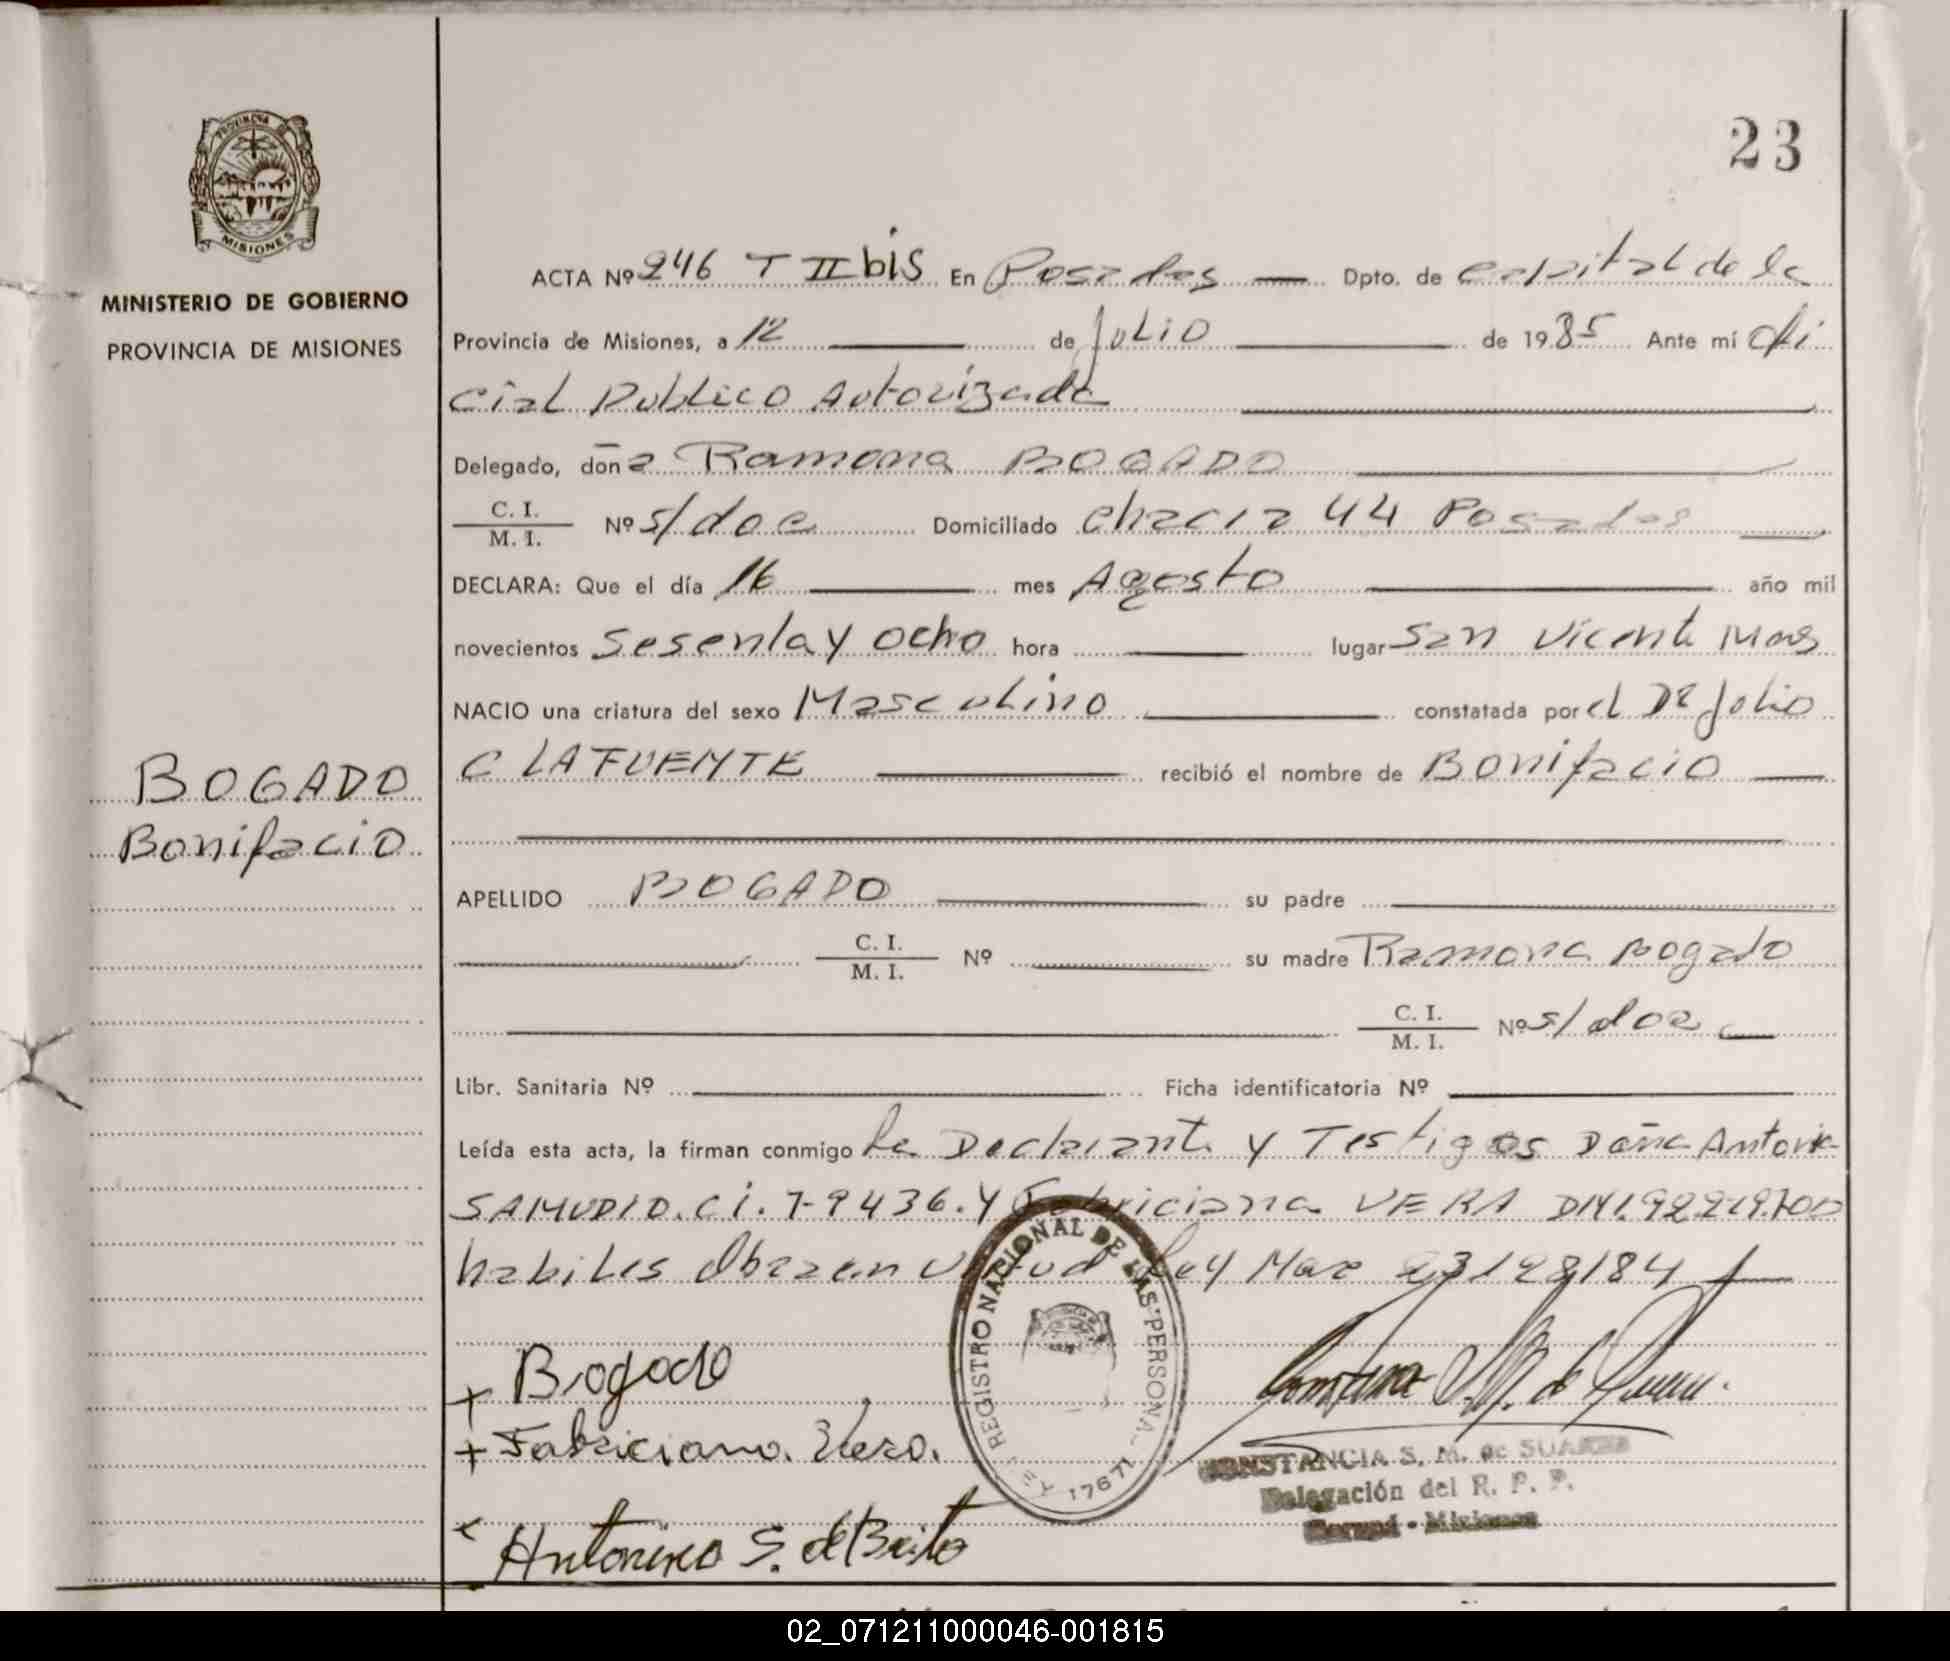 23
PROVINCIA
MISIONES
MINISTERIO DE GOBIERNO
PROVINCIA DE MISIONES
BOGADO
Bonifacio
ACTA Nº 246 T II bis En Posadas Dpto. de capital de la
Provincia de Misiones, a 12 de julio de 1985 Ante mí ofi
cial Publico Autorizada
Delegado, doña Ramona BOGADO
C. I.
M. I. Nº s/doc Domiciliado chacra 44 Posadas
DECLARA: Que el día 16 mes Agosto año mil
novecientos sesenta y ocho hora lugar San Vicente Mnes
NACIO una criatura del sexo Masculino constatada por el Dr Julio
C LAFUENTE recibió el nombre de Bonifacio
APELLIDO BOGADO su padre
C. I.
M. I. Nº su madre Ramona Bogado
C. I.
M. I. Nº s/doc
Libr. Sanitaria Nº Ficha identificatoria Nº
Leída esta acta, la firman conmigo la Declarante y Testigos Doña Antonia
SAMUDIO. C.i. y Fabriciana VERA
habiles Ley 23128/84
Bogado
Fabriciano. Vera.
S. de Brito
REGISTRO NACIONAL DE LAS PERSONAS
17671
CONSTANCIA S. M. de SUAREZ
Delegación del R. P. P.
Misiones
02_071211000046-001815